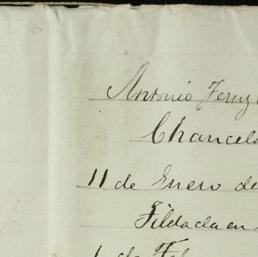 Antonio Fernz
Chancel
11 de Enero de
Fildada en
1 de Feb